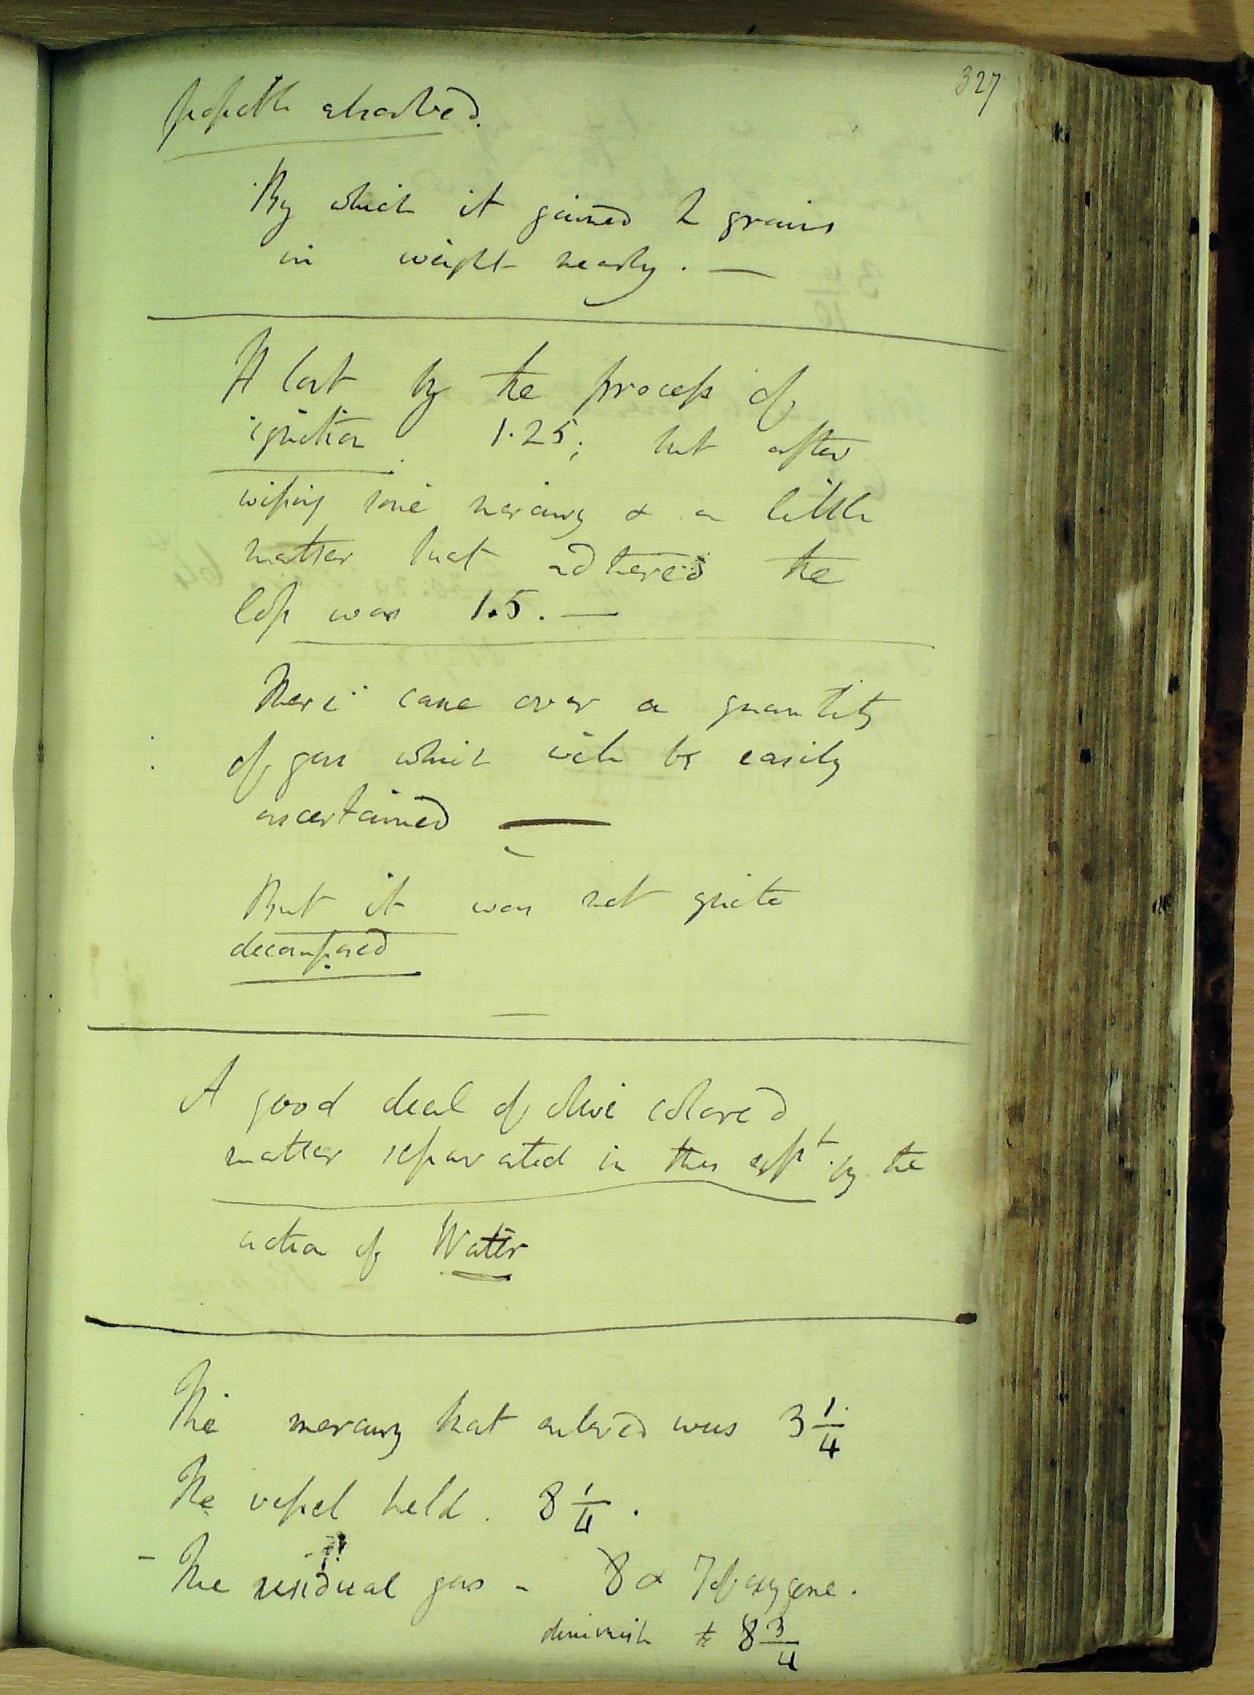 327
absorbed.
By which it gained 2 grains
in weight nearly. —
It lost by the process of
ignition 1.25; but after
wiping some mercury & a little
matter that adhered the
loss was 1.5. —
There came over a quantity
of gas which will be easily
ascertained —
But it was not quite
decomposed
A good deal of olive colored
matter separated in this expt. by the
action of Water
The mercury that entered was 3 1/4
The vessel held. 8 1/4.
- The residual gas - 8 & 7 of oxygene.
diminish to 8 3/4